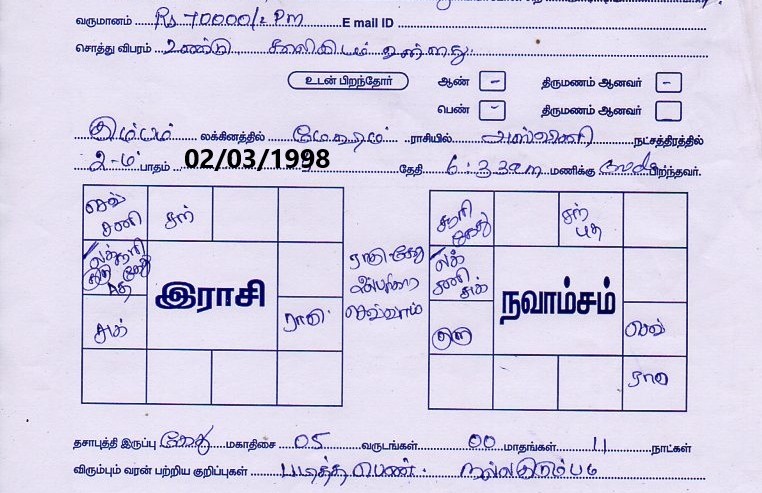 வருமானம் Rs 70000/= Pm E mail ID
சொத்து விபரம் உண்டு
உடன் பிறந்தோர் ஆண் - திருமணம் ஆனவர் -
பெண் - திருமணம் ஆனவர்
கும்பம் லக்கினத்தில் மேஷம் ராசியில் அஸ்வினி நட்சத்திரத்தில்
2-ம் பாதம் 02/03/1998 தேதி 6:33am மணிக்கு பிறந்தவர்.
செவ் சனி
சந்
லக் சூரி குரு கேது புத
இராசி
சுக்
ராகு
ராகு கேது
செவ்வாய்
சூரி கேது
சந் புத
லக் சனி சுக்
நவாம்சம்
குரு
செவ்
ராகு
தசாபுத்தி இருப்பு கேது மகாதிசை 05 வருடங்கள் 00 மாதங்கள் 11 நாட்கள்
விரும்பும் வரன் பற்றிய குறிப்புகள் படித்த பெண். நல்ல குடும்பம்